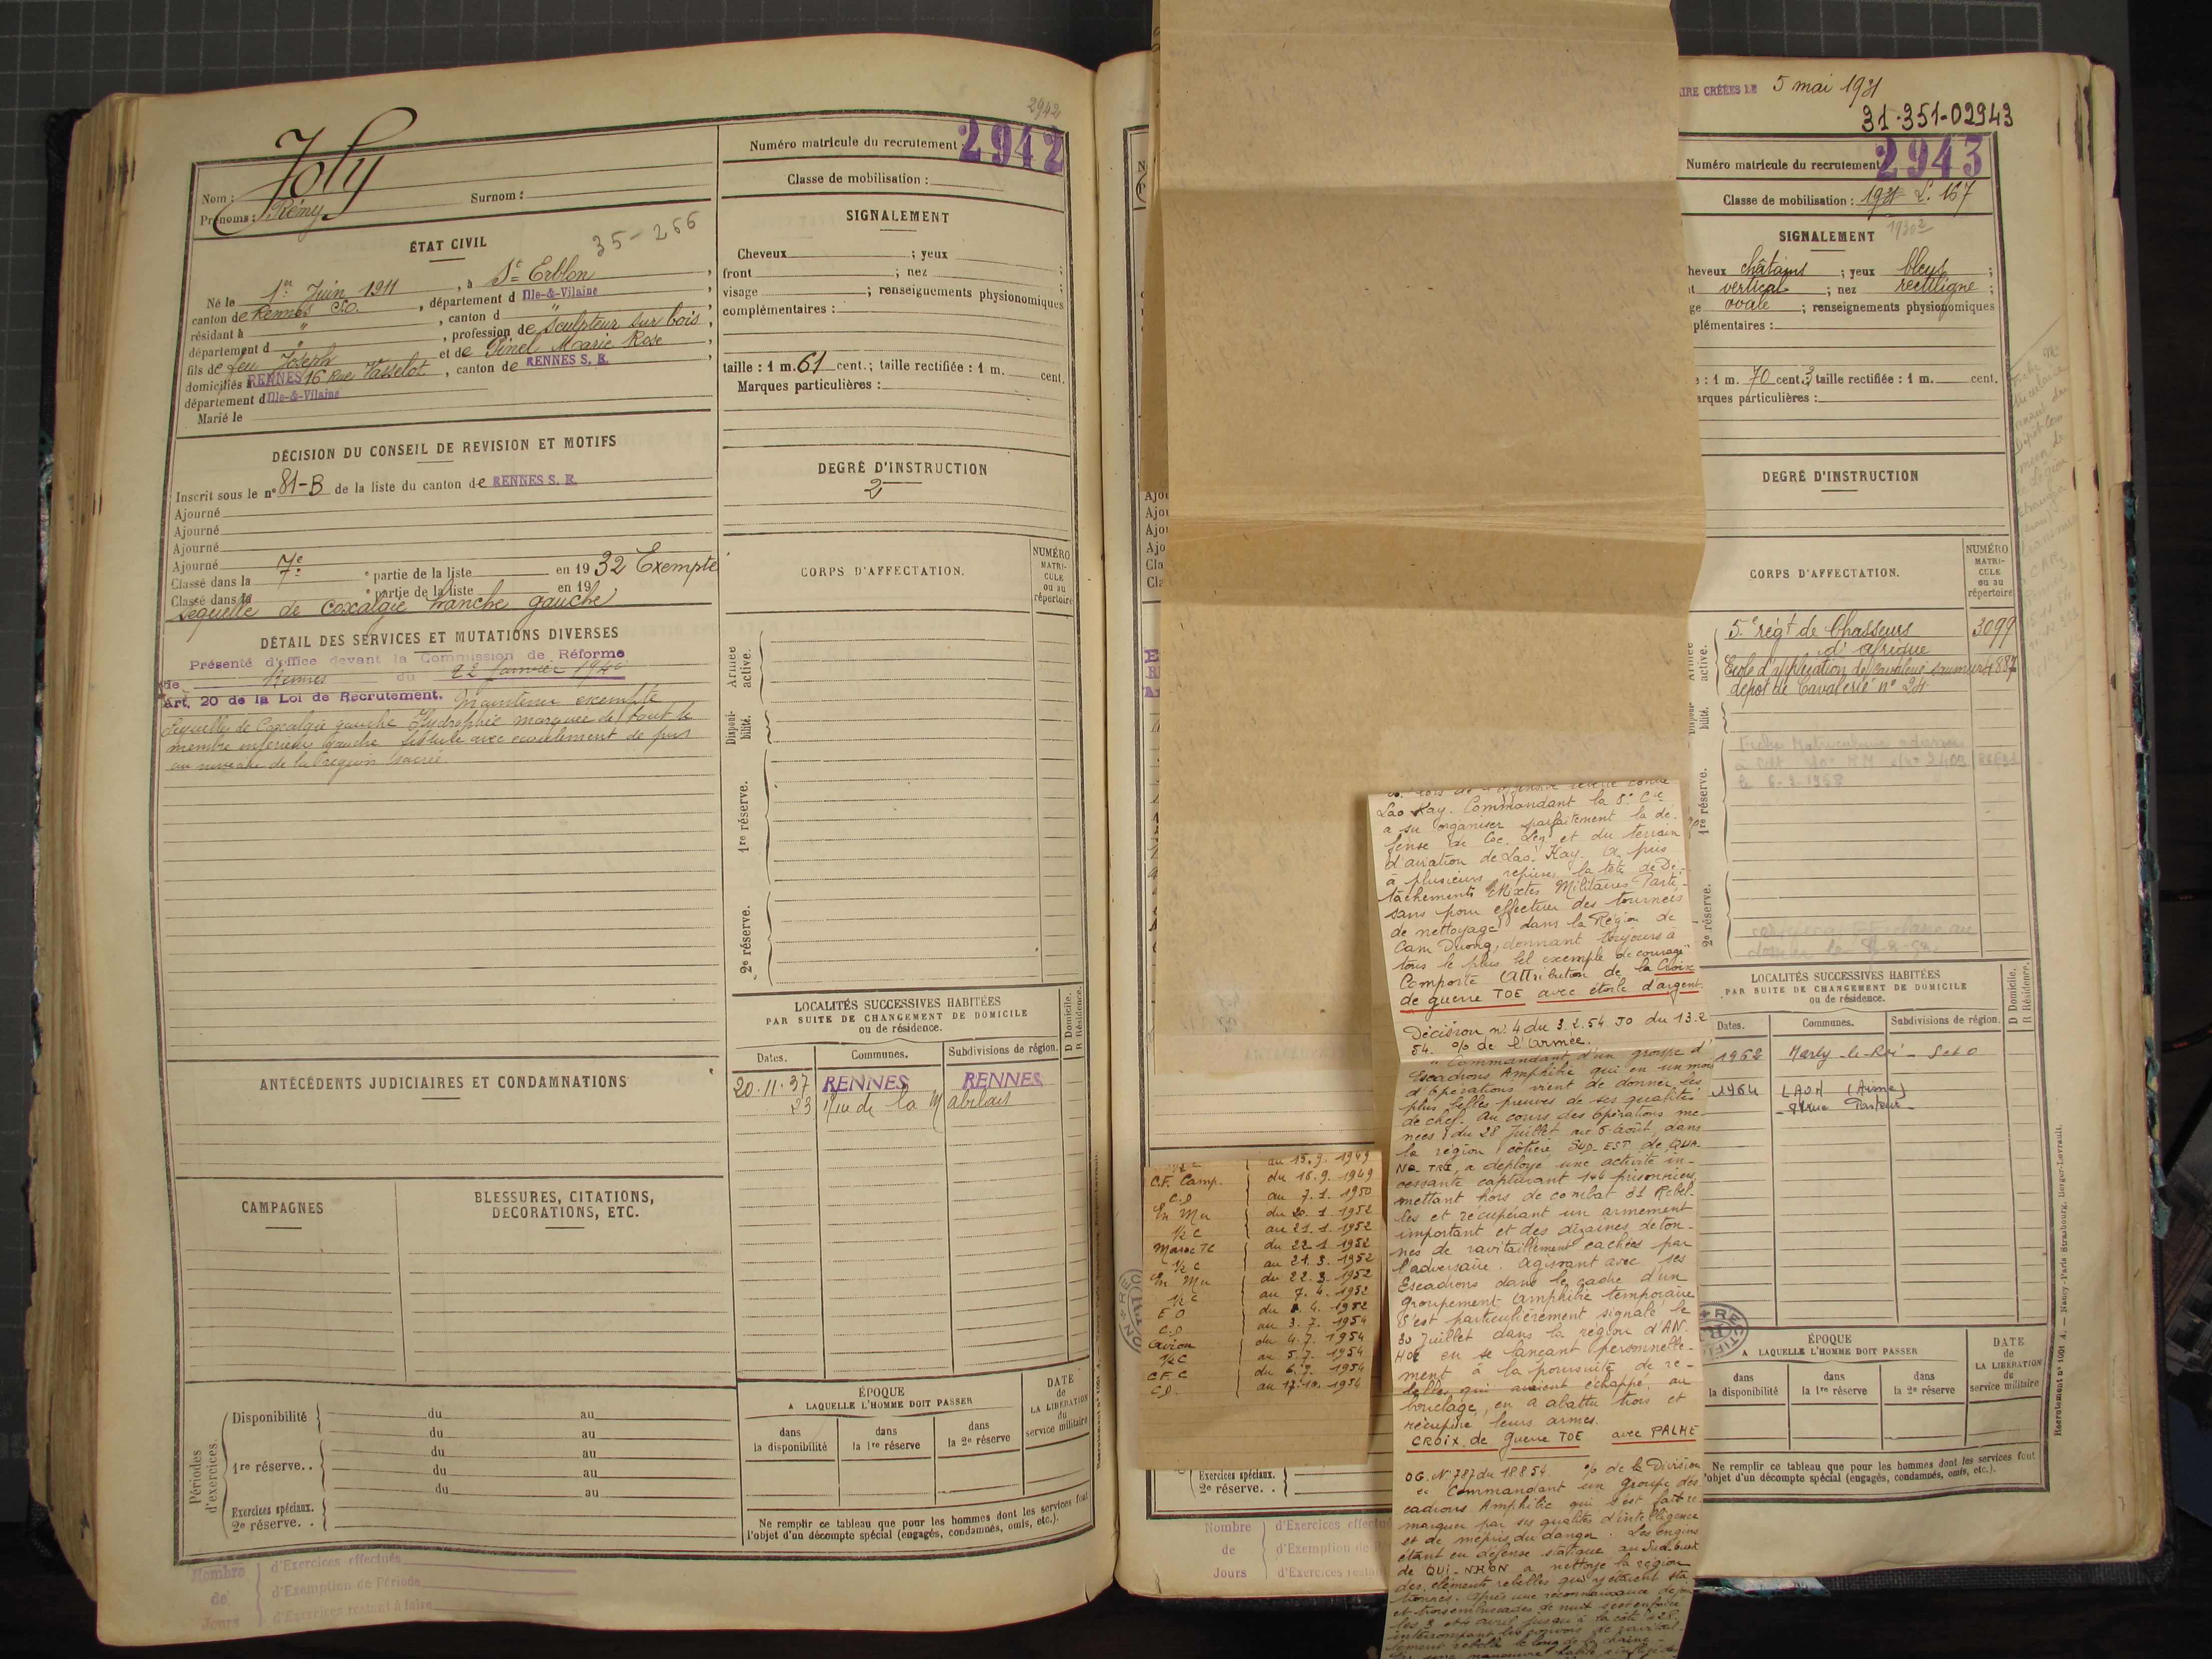 2942
Numéro matricule du recrutement : 2942
Classe de mobilisation :
Nom : Joly
Prénoms : Rémy
Surnom :
ÉTAT CIVIL
35-266
Né le 1er Juin 1911, à St Erblon,
canton de Rennes S.O., département d Ille-&-Vilaine,
résidant à ", canton d ",
département d ", profession de sculpteur sur bois,
fils de feu Joseph et de Pinel Marie Rose
domiciliés à RENNES 16 Rue Vasselot, canton de RENNES S. E.
département d Ille-&-Vilaine
Marié le
DÉCISION DU CONSEIL DE REVISION ET MOTIFS
Inscrit sous le n° 81-B de la liste du canton de RENNES S. E.
Ajourné
Ajourné
Ajourné
Ajourné
Classé dans la 7e partie de la liste en 1932 Exempté
Classé dans la 7e partie de la liste en 19
Séquelle de coxalgie hanche gauche
DÉTAIL DES SERVICES ET MUTATIONS DIVERSES
Présenté d'office devant la Commission de Réforme
de Rennes du 22 Janvier 1940
Art. 20 de la Loi de Recrutement. Maintenu exempté
Séquelles de Coxalgie gauche marquée de tout le
membre inférieur gauche fistule avec écoulement de pus
au niveau de la région sacrée
ANTÉCÉDENTS JUDICIAIRES ET CONDAMNATIONS
CAMPAGNES
BLESSURES, CITATIONS,
DÉCORATIONS, ETC.
Périodes d'exercices.
Disponibilité du au
du au
1re réserve.. du au
du au
du au
Exercices spéciaux.
2e réserve. .
Nombre de Jours
d'Exercices effectués
d'Exemption de Période
d'Exercices restant à faire
SIGNALEMENT
Cheveux ; yeux ;
front ; nez ;
visage ; renseignements physionomiques
complémentaires :
taille : 1 m. 61 cent.; taille rectifiée : 1 m. cent.
Marques particulières :
DEGRÉ D'INSTRUCTION
2
CORPS D'AFFECTATION.
NUMÉRO MATRI-CULE ou au répertoire
Armée active.
Disponi-bilité.
1re réserve.
2e réserve.
LOCALITÉS SUCCESSIVES HABITÉES
PAR SUITE DE CHANGEMENT DE DOMICILE
ou de résidence.
D Domicile. R Résidence.
Dates. Communes. Subdivisions de région.
20.11.37 RENNES RENNES
23 rue de la Mabilais
ÉPOQUE
A LAQUELLE L'HOMME DOIT PASSER
dans la disponibilité
dans la 1re réserve
dans la 2e réserve
DATE de LA LIBÉRATION du service militaire
Ne remplir ce tableau que pour les hommes dont les services font
l'objet d'un décompte spécial (engagés, condamnés, omis, etc.).
C.F. Camp.
C.D
En Mu
1/2 C
Maroc TC
1/2 C
En Mu
1/2 C
E O
C.D
Avion
1/2 C
C F C
C.D.
au 15.9.1949
du 16.9.1949
au 7.1.1950
du 20.1.1952
au 21.1.1952
du 22.1.1952
au 21.3.1952
du 22.3.1952
au 7.4.1952
du 8.4.1952
au 3.7.1954
du 4.7.1954
au 5.7.1954
du 6.7.1954
au 17.10.1954
Exercices spéciaux.
2e réserve. .
Nombre
de
Jours
d'Exercices effectués
d'Exemption de
d'Exercices restant
Lao Kay. Commandant la 8e Cie
a su organiser parfaitement la dé-
fense de Coc Ley et du terrain
d'aviation de Lao Kay. A pris
à plusieurs reprises la tête de Dé-
tachements Mixtes Militaires Parti-
sans pour effectuer des tournées
de nettoyage dans la Région de
Cam Duong, donnant toujours à
tous le plus bel exemple de courage
Comporte Attribution de la Croix
de guerre TOE avec étoile d'argent.
Décision n° 4 du 3.2.54 JO du 13.2
54. % de l'armée.
" Commandant d'un groupe d'
Escadrons Amphibie qui en un mois
d'opérations vient de donner les
plus belles preuves de ses qualités
de chef. Au cours des opérations me-
nées du 28 Juillet au 5 Août, dans
la région côtière SUD-EST de QUA
NG-TRI, a déployé une activité in-
cessante capturant 144 prisonniers
mettant hors de combat 31 Rebel-
les et récupérant un armement
important et des dizaines de ton-
nes de ravitaillement cachées par
l'adversaire. Agissant avec ses
Escadrons dans le cadre d'un
groupement amphibie temporaire
s'est particulièrement signalé le
30 Juillet dans la région d'AN.
HOI en se lançant personnelle-
ment à la poursuite de re-
belles qui avaient échappé au
bouclage, en a abattu trois et
récupéré leurs armes.
CROIX de guerre TOE avec PALME
OG. N° 787 du 18 8 54. % de la Division
" Commandant un groupe d'es
cadrons Amphibie qui s'est fait re
marquer par ses qualités d'intelligence
et de mépris du danger. Les engins
étant en défense statique au Sud-ouest
de QUI-NHON a nettoyé la région
des éléments rebelles qui y étaient sta
tionnés. Après une reconnaissance de
et trois embuscades de nuit s'est enfoncé
les 3 et 4 avril jusqu'à la côte 28
interrompant les convois de ravitail-
lement rebelle le long de la chaîne
AIRE CRÉÉES LE 5 mai 1931
31-351-02943
Numéro matricule du recrutement 2943
Classe de mobilisation : 1931 L. 167
SIGNALEMENT
cheveux châtains ; yeux bleus ;
vertical ; nez rectiligne ;
ovale ; renseignements physionomiques
plémentaires :
: 1 m. 70 cent. 3; taille rectifiée : 1 m. cent.
arques particulières :
DEGRÉ D'INSTRUCTION
CORPS D'AFFECTATION.
NUMÉRO MATRI-CULE ou au répertoire
active.
5e régt de Chasseurs d'afrique 3099
Ecole d'application de Cavalerie Saumur 4887
dépôt de Cavalerie n° 24
Fiche Matriculaire adressée
le 6-3-1958
1re réserve.
2e réserve.
LOCALITÉS SUCCESSIVES HABITÉES
PAR SUITE DE CHANGEMENT DE DOMICILE
ou de résidence.
D Domicile. R Résidence.
Dates. Communes. Subdivisions de région.
1952 Marly-le-Roi S et O
1964 LAON (Aisne)
rue Pasteur
RECTIFIÉ
ÉPOQUE
A LAQUELLE L'HOMME DOIT PASSER
dans la disponibilité
dans la 1re réserve
dans la 2e réserve
DATE de LA LIBÉRATION du service militaire
Ne remplir ce tableau que pour les hommes dont les services font
l'objet d'un décompte spécial (engagés, condamnés, omis, etc.).
Recrutement n° 1001 A. — Nancy-Paris-Strasbourg, Berger-Levrault.